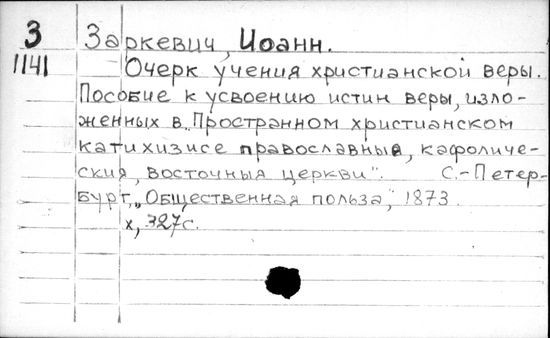 З Заркевич, Иоанн.
1141 Очерк учения христианской веры.
Пособие к усвоению истин веры, изло-
женных в „Пространном христианском
катихизисе православныя, кафоличе-
ския, восточныя церкви". С.-Петер-
бург, „Общественная польза", 1873.
x, 327 с.